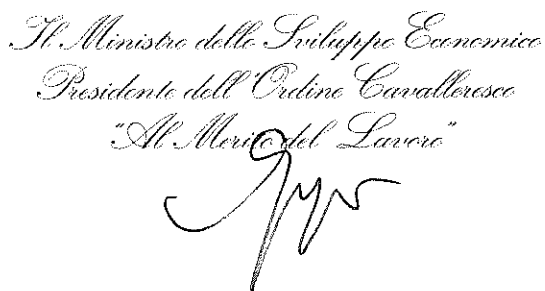 Il Ministro dello Sviluppo Economico
Presidente dell'Ordine Cavalleresco
"Al Merito del Lavoro"